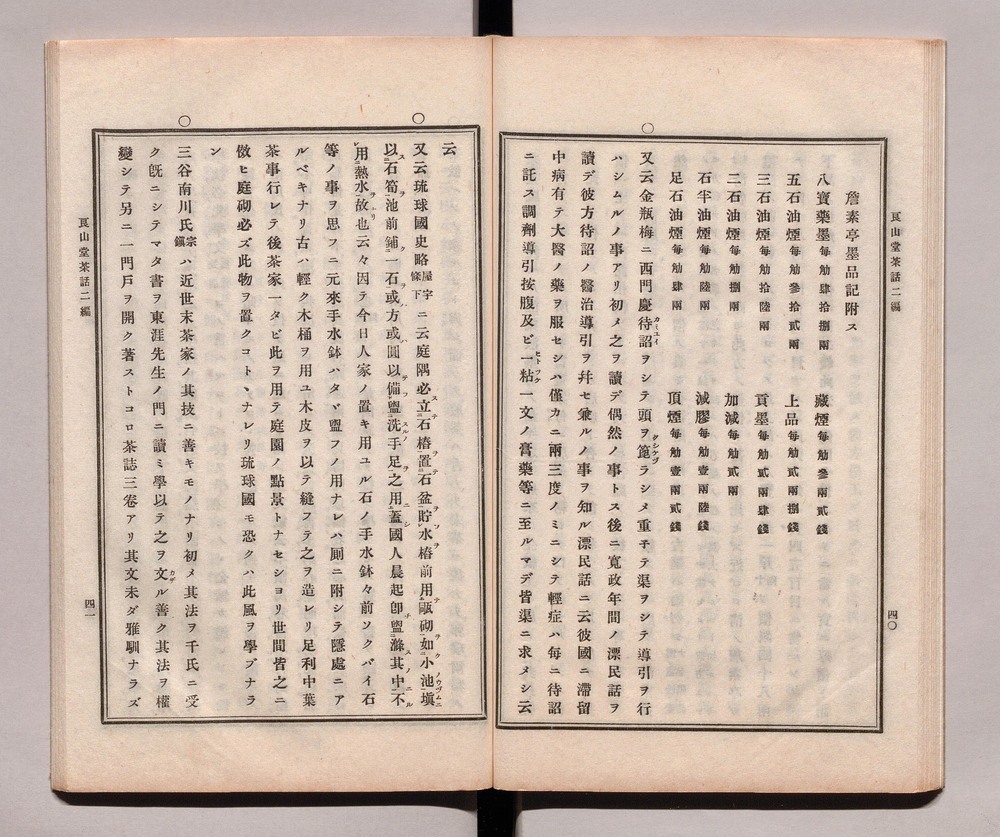 艮山堂茶話二編
四〇
詹素亭墨品記附ス
八寶藥墨每觔肆拾捌兩 藏煙每觔參兩貳錢
五石油煙每觔參拾貳兩 上品每觔貳兩捌錢
三石油煙每觔拾陸兩 貢墨每觔貳兩肆錢
二石油煙每觔捌兩 加減每觔貳兩
石半油煙每觔陸兩 減膠每觔壹兩陸錢
足石油煙每觔肆兩 頂煙每觔壹兩貳錢
○
又云金瓶梅ニ西門慶待詔ヲシテ頭ヲ篦ラシメ重子テ渠ヲシテ導引ヲ行
ハシムルノ事アリ初メ之ヲ讀デ偶然ノ事トス後ニ寬政年間ノ漂民話ヲ
讀デ彼方待詔ノ醫治導引ヲ幷セ兼ルノ事ヲ知ル漂民話ニ云彼國ニ滯留
中病有テ大醫ノ藥ヲ服セシハ僅カニ兩三度ノミニシテ輕症ハ每ニ待詔
ニ託ス調劑導引按腹及ビ一粘一文ノ膏藥等ニ至ルマデ皆渠ニ求メシ云
云
○
又云琉球國史略屋宇條下ニ云庭隅必立石樁置石盆貯水樁前用甌砌如小池塡
以石筍池前鋪一石或方或圓以備盥洗手足之用蓋國人晨起卽盥滌其中不
用熱水故也云々因テ今日人家ノ置キ用ユル石ノ手水鉢々前ソクバイ石
等ノ事ヲ思フニ元來手水鉢ハタヾ盥フノノ用ナレハ厠ニ附シテ隱處ニア
ルベキナリ古ハ輕ク木桶ヲ用ユ木皮ヲ以テ縫フテ之ヲ造レリ足利中葉
茶事行レテ後茶家一タビ此ヲ用テ庭園ノ點景トナセシヨリ世間皆之ニ
倣ヒ庭砌必ズ此物ヲ置クコトヽナレリ琉球國モ恐クハ此風ヲ學ブナラ
ン
○
三谷南川氏宗鎭ハ近世末茶家ノ其技ニ善キモノナリ初メ其法ヲ千氏ニ受
ク旣ニシテマタ書ヲ東涯先生ノ門ニ讀ミ學以テ之ヲ文ル善ク其法ヲ權
變シテ另ニ一門戶ヲ開ク著ストコロ茶誌三卷アリ其文未ダ雅馴ナラズ
艮山堂茶話二編
四一